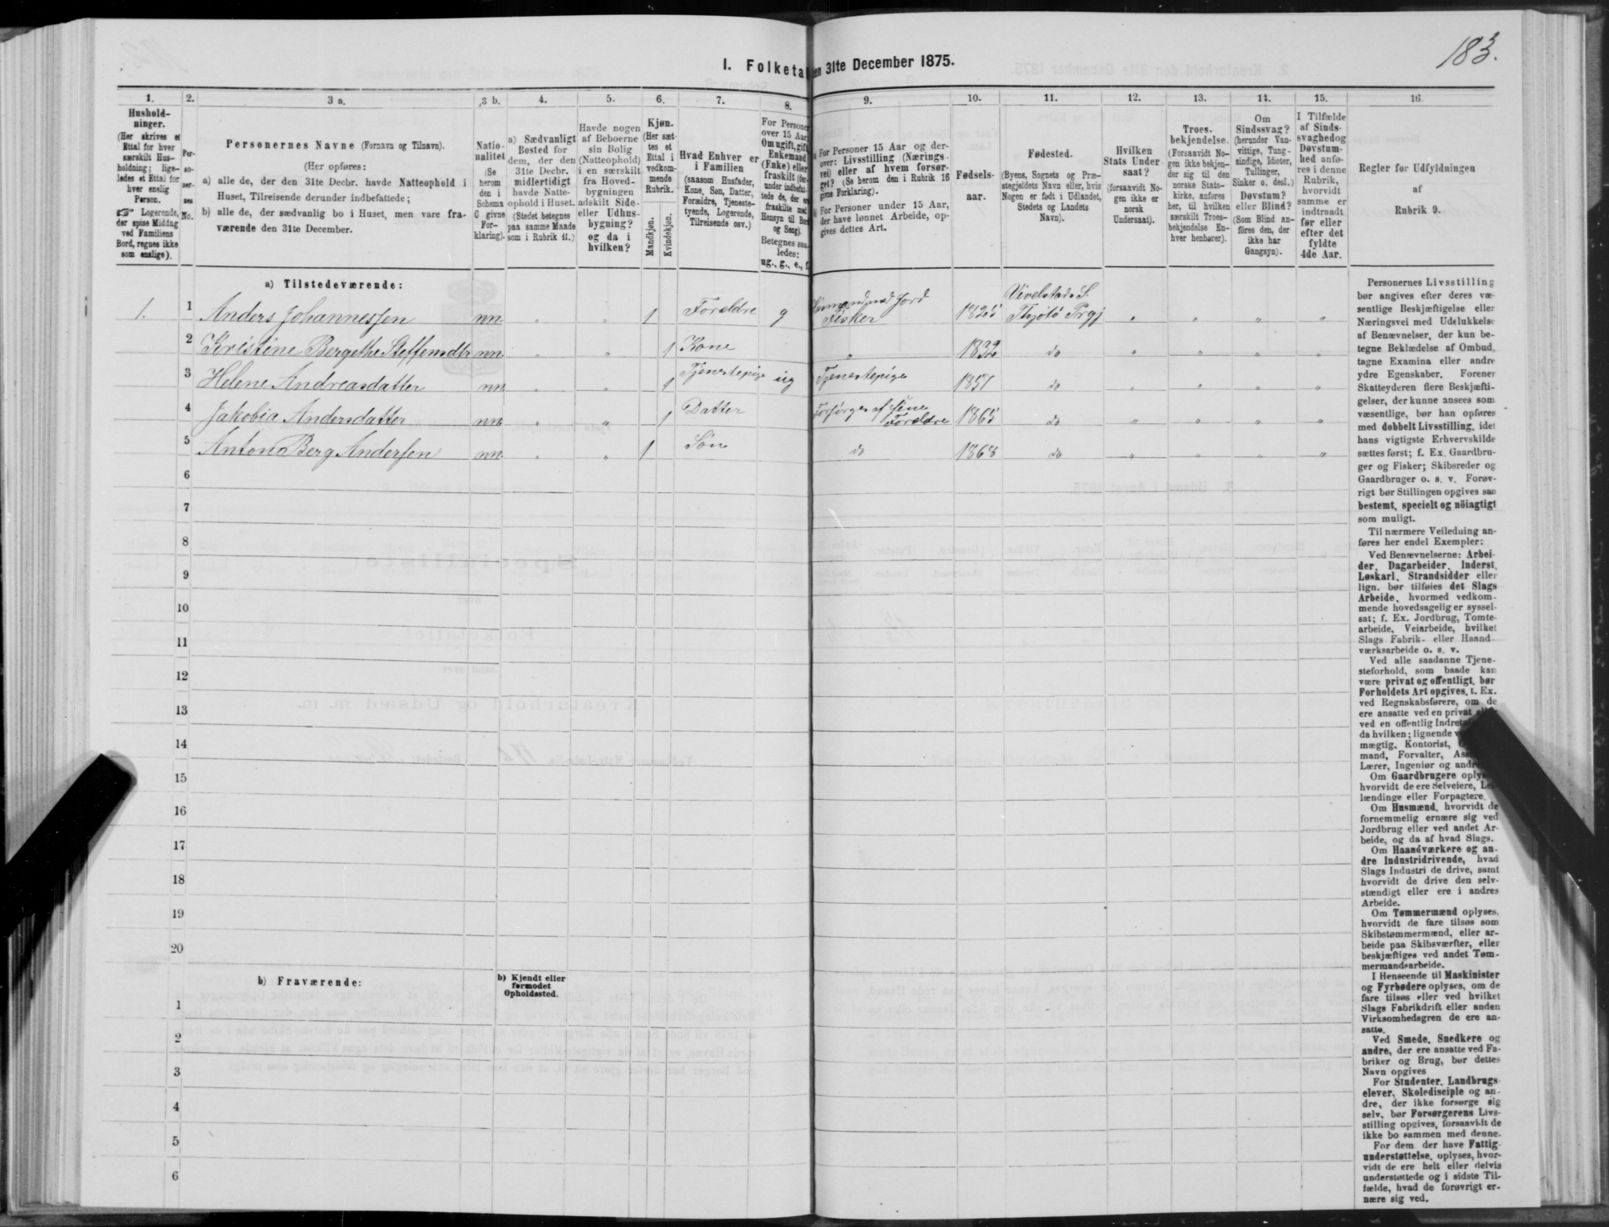 183.
I. Folketal den 31te December 1875.
1. 2. 3 a. 3 b. 4. 5. 6. 7. 8. 9. 10. 11. 12. 13. 14. 15. 16.
Hushold-
ninger.
(Her skrives et
Ettal for hver
særskilt Hus-
holdning; lige-
ledes et Ettal for
hver enslig
Person.
☞ Logerende,
der spise Middag
ved Familiens
Bord, regnes ikke
som enslige).
Per-
so-
ner-
nes
No.
Personernes Navne (Fornavn og Tilnavn).
(Her opføres:
a) alle de, der den 31te Decbr. havde Natteophold i
Huset, Tilreisende derunder indbefattede;
b) alle de, der sædvanlig bo i Huset, men vare fra-
værende den 31te December.
Natio-
nalitet
(Se
herom
den i
Schema
O givne
For-
klaring).
a) Sædvanligt
Bosted for
dem, der den
31te Decbr.
midlertidigt
havde Natte-
ophold i Huset.
(Stedet betegnes
paa samme Maade
som i Rubrik 11.)
Havde nogen
af Beboerne
sin Bolig
(Natteophold)
i en særskilt
fra Hoved-
bygningen
adskilt Side-
eller Udhus-
bygning?
og da i
hvilken?
Kjøn.
(Her sæt-
tes et
Ettal i
vedkom-
mende
Rubrik.
Mandkjøn.
Kvindekjøn.
Hvad Enhver er
i Familien
(saasom Husfader,
Kone, Søn, Datter,
Forældre, Tjeneste-
tyende, Logerende,
Tilreisende osv.)
For Personer
over 15 Aar:
Om ugift, gift,
Enkemand
(Enke) eller
fraskilt
Betegnes saa-
ledes:
ug., g., e., f.
a) For Personer 15 Aar og der-
over: Livsstilling (Nærings-
vei) eller af hvem forsør-
get? (Se herom den i Rubrik 16
givne Forklaring).
b) For Personer under 15 Aar,
der have lønnet Arbeide, op-
gives dettes Art.
Fødsels-
aar.
Fødested.
(Byens, Sognets og Præ-
stegjeldets Navn eller, hvis
Nogen er født i Udlandet,
Stedets og Landets
Navn).
Hvilken
Stats Under-
saat?
(forsaavidt No-
gen ikke er
norsk
Undersaat).
Troes-
bekjendelse.
(Forsaavidt No-
gen ikke bekjen-
der sig til den
norske Stats-
kirke, anføres
her, til hvilken
særskilt Troes-
bekjendelse En-
hver henhører).
Om
Sindssvag?
(herunder Van-
vittige, Tung-
sindige, Idioter,
Tullinger,
Sinker o. desl.)
Døvstum?
eller Blind?
(Som Blind an-
føres den, der
ikke har
Gangsyn).
I Tilfælde
af Sinds-
svaghedog
Døvstum-
hed anfø-
res i denne
Rubrik,
hvorvidt
samme er
indtraadt
før eller
efter det
fyldte
4de Aar.
Regler for Udfyldningen
af
Rubrik 9.
a) Tilstedeværende:
1. 1 Anders Johannessen nn „ „ 1 Foreldre g Husmand med Jord Fisker 1825 S. Tjøtø Prgj „ „ „ „
2 Kristine Bergethe Steffensdtr nn „ „ 1 Kone „ 1832 do „ „ „ „
3 Helene Andreasdatter nn „ „ 1 Tjenestepige ug Tjenestepige 1857 do „ „ „ „
4 Jakobia Andersdatter nn „ „ 1 Datter Forsørges af sine Foreldre 1865 do „ „ „ „
5 Anton Berg Andersen nn „ „ 1 Søn do 1868 do „ „ „ „
6
7
8
9
10
11
12
13
14
15
16
17
18
19
20
b) Fraværende:
b) Kjendt eller
formodet
Opholdssted.
1
2
3
4
5
6
Personernes Livsstilling
bør angives efter deres væ-
sentlige Beskjæftigelse eller
Næringsvei med Udelukkelse
af Benævnelser, der kun be-
tegne Beklædelse af Ombud,
tagne Examina eller andre
ydre Egenskaber. Forener
Skatteyderen flere Beskjæfti-
gelser, der kunne ansees som
væsentlige, bør han opføres
med dobbelt Livsstilling, idet
hans vigtigste Erhvervskilde
sættes først; f. Ex. Gaardbru-
ger og Fisker; Skibsreder og
Gaardbruger o. s. v. Forøv-
rigt bør Stillingen opgives saa
bestemt, specielt og nöiagtigt
som muligt.
Til nærmere Veiledning an-
føres her endel Exempler:
Ved Benævnelserne: Arbei-
der, Dagarbeider, Inderst,
Løskarl, Strandsidder eller
lign. bør tilføies det Slags
Arbeide, hvormed vedkom-
mende hovedsagelig er syssel-
sat; f. Ex. Jordbrug, Tomte-
arbeide, Veiarbeide, hvilket
Slags Fabrik- eller Haand-
værksarbeide o. s. v.
Ved alle saadanne Tjene-
steforhold, som baade kan
være privat og offentligt, bør
Forholdets Art opgives, t. Ex.
ved Regnskabsførere, om de
ere ansatte ved en privat
ved en offentlig
da hvilken; lignende
mægtig, Kontorist,
mand, Forvalter,
Lærer, Ingeniør og
Om Gaardbrugere
hvorvidt de ere Selveiere,
lændinge eller Forpagtere.
Om Husmænd, hvorvidt de
fornemmelig ernære sig ved
Jordbrug eller ved andet Ar-
beide, og da af hvad Slags.
Om Haandværkere og an-
dre Industridrivende, hvad
Slags Industri de drive, samt
hvorvidt de drive den selv-
stændigt eller ere i andres
Arbeide.
Om Tømmermænd oplyses,
hvorvidt de fare tilsøs som
Skibstømmermænd, eller ar-
beide paa Skibsværfter, eller
beskjæftiges ved andet Tøm-
mermandsarbeide.
I Henseende til Maskinister
og Fyrbødere oplyses, om de
fare tilsøs eller ved hvilket
Slags Fabrikdrift eller anden
Virksomhedsgren de ere an-
satte.
Ved Smede, Snedkere og
andre, der ere ansatte ved Fa-
briker og Brug, bør dettes
Navn opgives
For Studenter, Landbrugs-
elever, Skoledisciple og an-
dre, der ikke forsørge sig
selv, bør Forsørgerens Livs-
stilling opgives, forsaavidt de
ikke bo sammen med denne.
For dem der have Fattig-
understøttelse, oplyses, hvor-
vidt de ere helt eller delvis
understøttede og i sidste Til-
fælde, hvad de forøvrigt er-
nære sig ved.